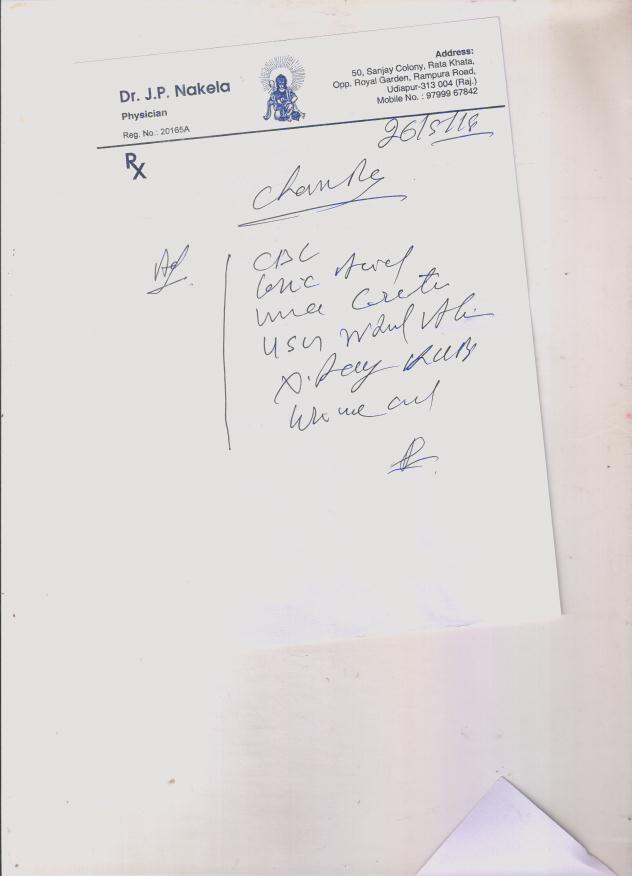 Dr. J.P. Nakela
Physician
Reg. No.: 20165A
Address:
50, Sanjay Colony, Rata Khata,
Opp. Royal Garden, Rampura Road,
Udiapur-313 004 (Raj.)
Mobile No. : 97999 67842
26/5/18
Rx
Ad.
CBC
Uric Acid
Urea
USG Abd
X.Ray KUB
Urine